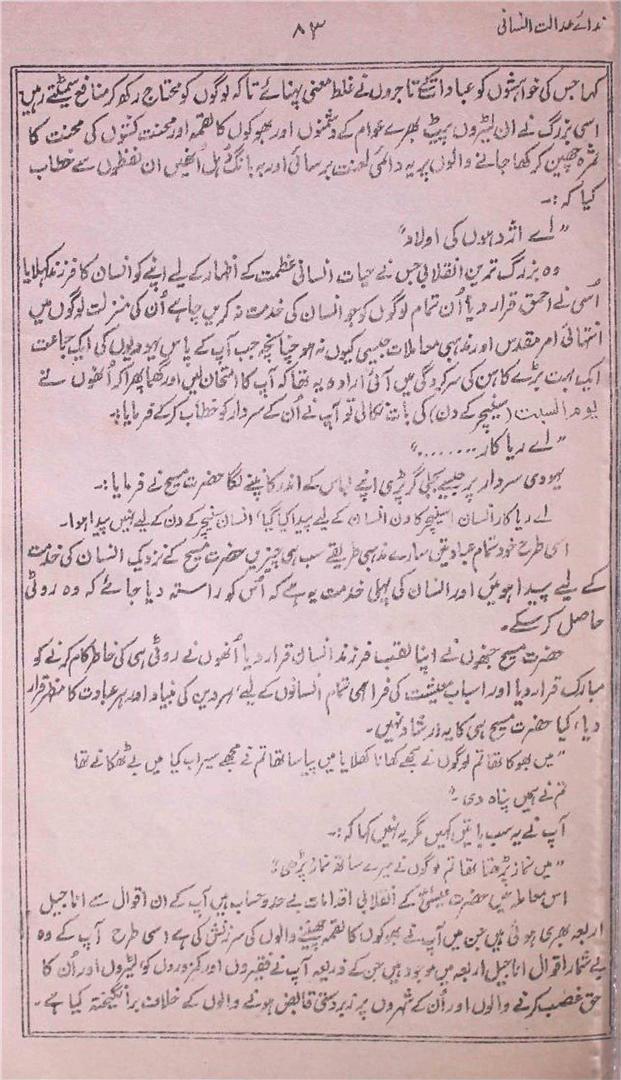 ندائے عدالت انسانی
۸۳
کہا جس کی خواہشوں کو عباداتی تاجروں نے غلط معنی پہنائے تاکہ لوگوں کو محتاج رکھ کر منافع سمیٹتے رہیں
اسی بزرگ نے ان لیٹروں پیٹ بھرے عوام کے دشمنوں اور بھوکوں کا لقمہ اور محنت کشوں کی محنت کا
ثمرہ چھین کر کھا جانے والوں پر یہ دائمی لعنت برسائی اور بہ بانگ دہل انھیں ان لفظوں سے خطاب
کیا کہ :۔
"اے اژدہوں کی اولاد"
وہ بزرگ ترین انقلابی جس نے حیات انسانی عظمت کے اظہار کے لیے اپنے کو انسان کا فرزند کہلایا
اُسی نے احمق قرار دیا اُن تمام لوگوں کو جو انسان کی خدمت نہ کریں چاہے اُن کی منزلت لوگوں میں
انتہائی امر مقدس اور مذہبی معاملات جیسی کیوں نہ ہو چنانچہ جب آپ کے پاس یہودیوں کی ایک جماعت
ایک بہت بڑے کاہن کی سرکردگی میں آئی ارادہ یہ تھا کہ آپ کا امتحان لیں اور گھما پھرا کر اُنھوں نے
یوم السبت (سنیچر کے دن) کی بات نکالی تو آپ نے اُن کے سردار کو خطاب کر کے فرمایا:۔
"اے ریاکار........"
یہودی سردار پر جیسے بجلی گر پڑی اپنے لباس کے اندر کانپنے لگا حضرت مسیح نے فرمایا :۔
اے ریاکار انسان! سنیچر کا دن انسان کے لیے پیدا کیا گیا، انسان سنیچر کے دن کے لیے نہیں پیدا ہوا۔
اسی طرح خود تمام عبادتیں سارے مذہبی طریقے سب ہی چیزیں حضرت مسیح کے نزدیک انسان کی خدمت
کے لیے پیدا ہوئیں اور انسان کی پہلی خدمت یہ ہے کہ اُس کو راستہ دیا جائے کہ وہ روٹی
حاصل کر سکے۔
حضرت مسیح جنھوں نے اپنا لقب فرزند انسان قرار دیا اُنھوں نے روٹی ہی کی خاطر کام کرنے کو
مبارک قرار دیا اور اسباب معیشت کی فراہمی تمام انسانوں کے لیے ہر دین کی بنیاد اور ہر عبادت کا مظہر قرار
دیا، کیا حضرت مسیح ہی کا یہ ارشاد نہیں۔
"میں بھوکا تھا تم لوگوں نے مجھے کھانا کھلایا میں پیاسا تھا تم نے مجھے سیراب کیا میں بے ٹھکانے تھا
تم نے ہمیں پناہ دی۔"
آپ نے یہ سب باتیں کہیں مگر یہ نہیں کہا کہ :۔
"میں نماز پڑھتا تھا تم لوگوں نے میرے ساتھ نماز پڑھی"
اس معاملہ میں حضرت عیسیٰؑ کے انقلابی اقدامات بے حد و حساب ہیں آپ کے ان اقوال سے اناجیل
اربعہ بھری ہوئی ہیں جن میں آپ نے بھوکوں کا لقمہ چھیننے والوں کی سرزنش کی ہے اسی طرح آپ کے وہ
بے شمار اقوال اناجیل اربعہ میں موجود ہیں جن کے ذریعہ آپ نے فقیروں اور کمزوروں کو لیٹروں اور اُن کا
حق غصب کرنے والوں اور اُن کے شہروں پر زبردستی قابض ہونے والوں کے خلاف برانگیختہ کیا ہے۔